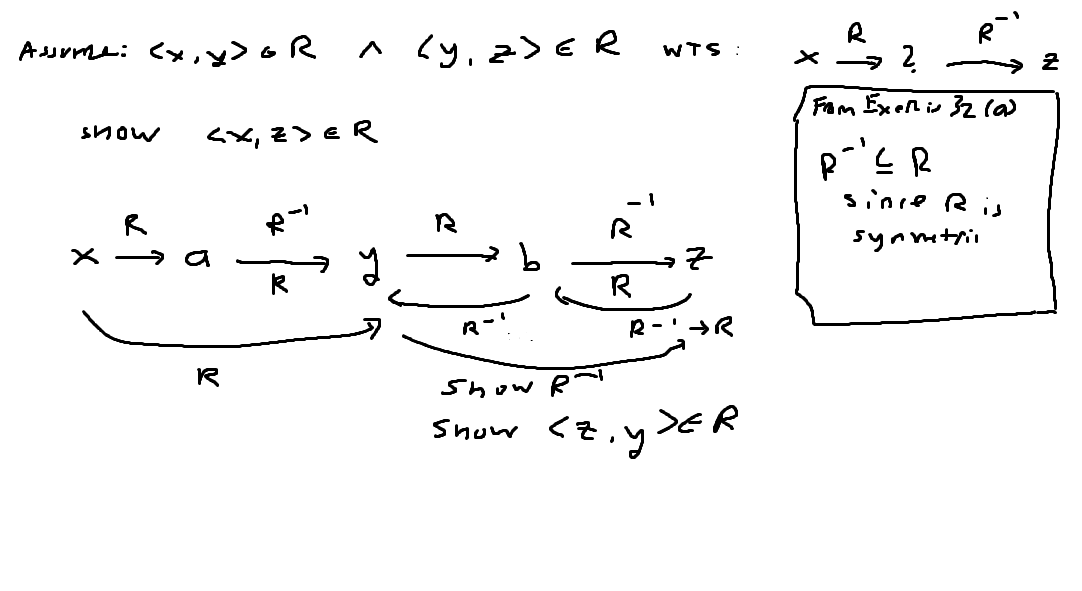 Assume: <x, y> ∈ R ∧ <y, z> ∈ R WTS:
x R → ? R⁻¹ → z
show <x, z> ∈ R
From Exercis 32 (a)
R⁻¹ ⊆ R
since R is
symmetric
R R⁻¹ R R⁻¹
x → a → y → b → z
R R
R⁻¹ R⁻¹ → R
R
show R⁻¹
show <z, y> ∈ R